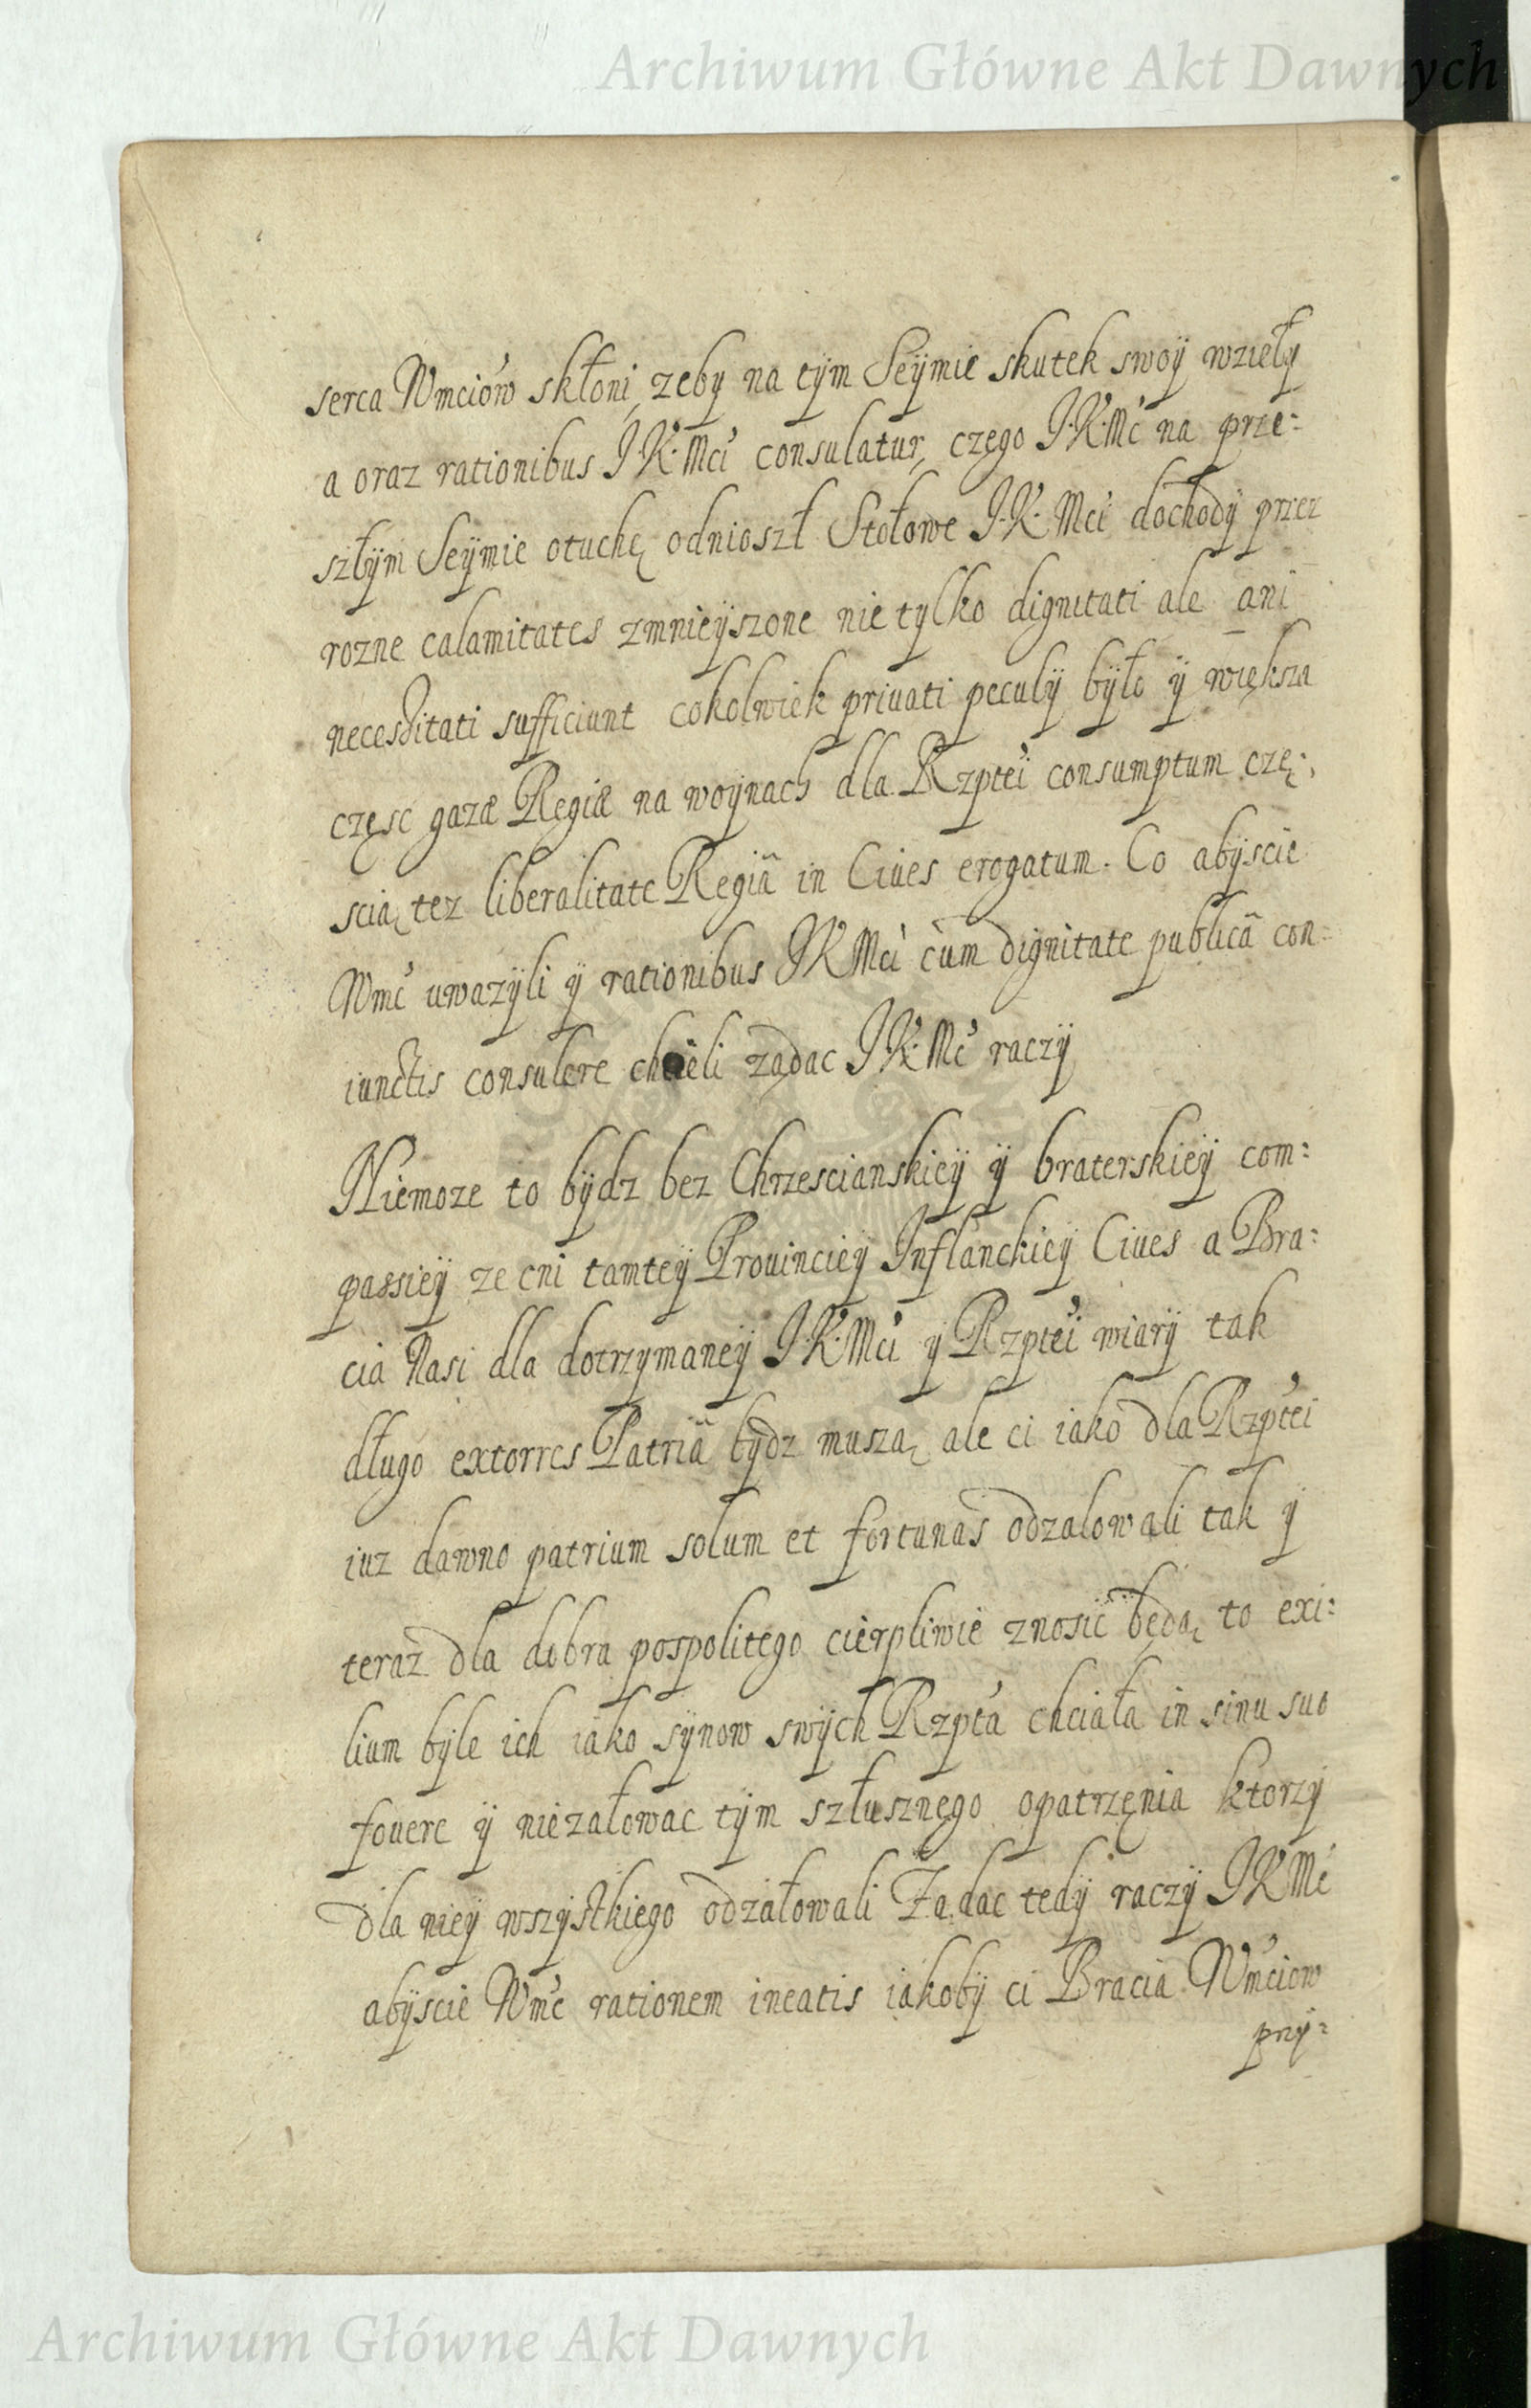 Archiwum Główne Akt Dawnych
serca Wmciów skłoni, zeby na tÿm Seÿmie skutek swoÿ wzieły
a oraz rationibus J.K.Mci consulatur, czego J.K.Mć na prze:
szłÿm Seÿmie otuchę odnioszł Stołowe J.K.Mci dochodÿ przez
rozne calamitates zmnieÿszone nie tylko dignitati ale ani
necessitati sufficiunt cokolwiek priuati peculÿ bÿło ÿ większa
częsc gazæ Regiæ na woÿnach dla Rzptei consumptum czę:
scią tez liberalitate Regiâ in Ciues erogatum. Co abÿscie
Wmć uwazÿli ÿ rationibus JKMci cum dignitate publicâ con:
iunctis consulere chcieli ządac J.K.Mć raczÿ
Niemoze to bÿdz bez Chrzescianskieÿ ÿ braterskieÿ com:
passieÿ ze cni tamteÿ Prouincieÿ Inflanckieÿ Ciues a Bra:
cia Nasi dla dotrzymaneÿ J.K.Mci ÿ Rzptei wiarÿ tak
długo extorres Patriâ bÿdz muszą ale ci iako dla Rzptei
iuz dawno patrium solum et fortunas odzalowali tak ÿ
teraz dla dobra pospolitego cierpliwie znosic będą to exi:
lium bÿle ich iako sÿnow swÿch Rzpta chciała in sinu suo
fouere ÿ niezałowac tÿm szłusznego opatrzęnia ktorzÿ
dla nieÿ wszÿstkiego odzałowali Ządac tedÿ raczÿ JKMć
abÿscie Wmć rationem ineatis iakobÿ ci Bracia Wmciow
przÿ:
Archiwum Główne Akt Dawnych